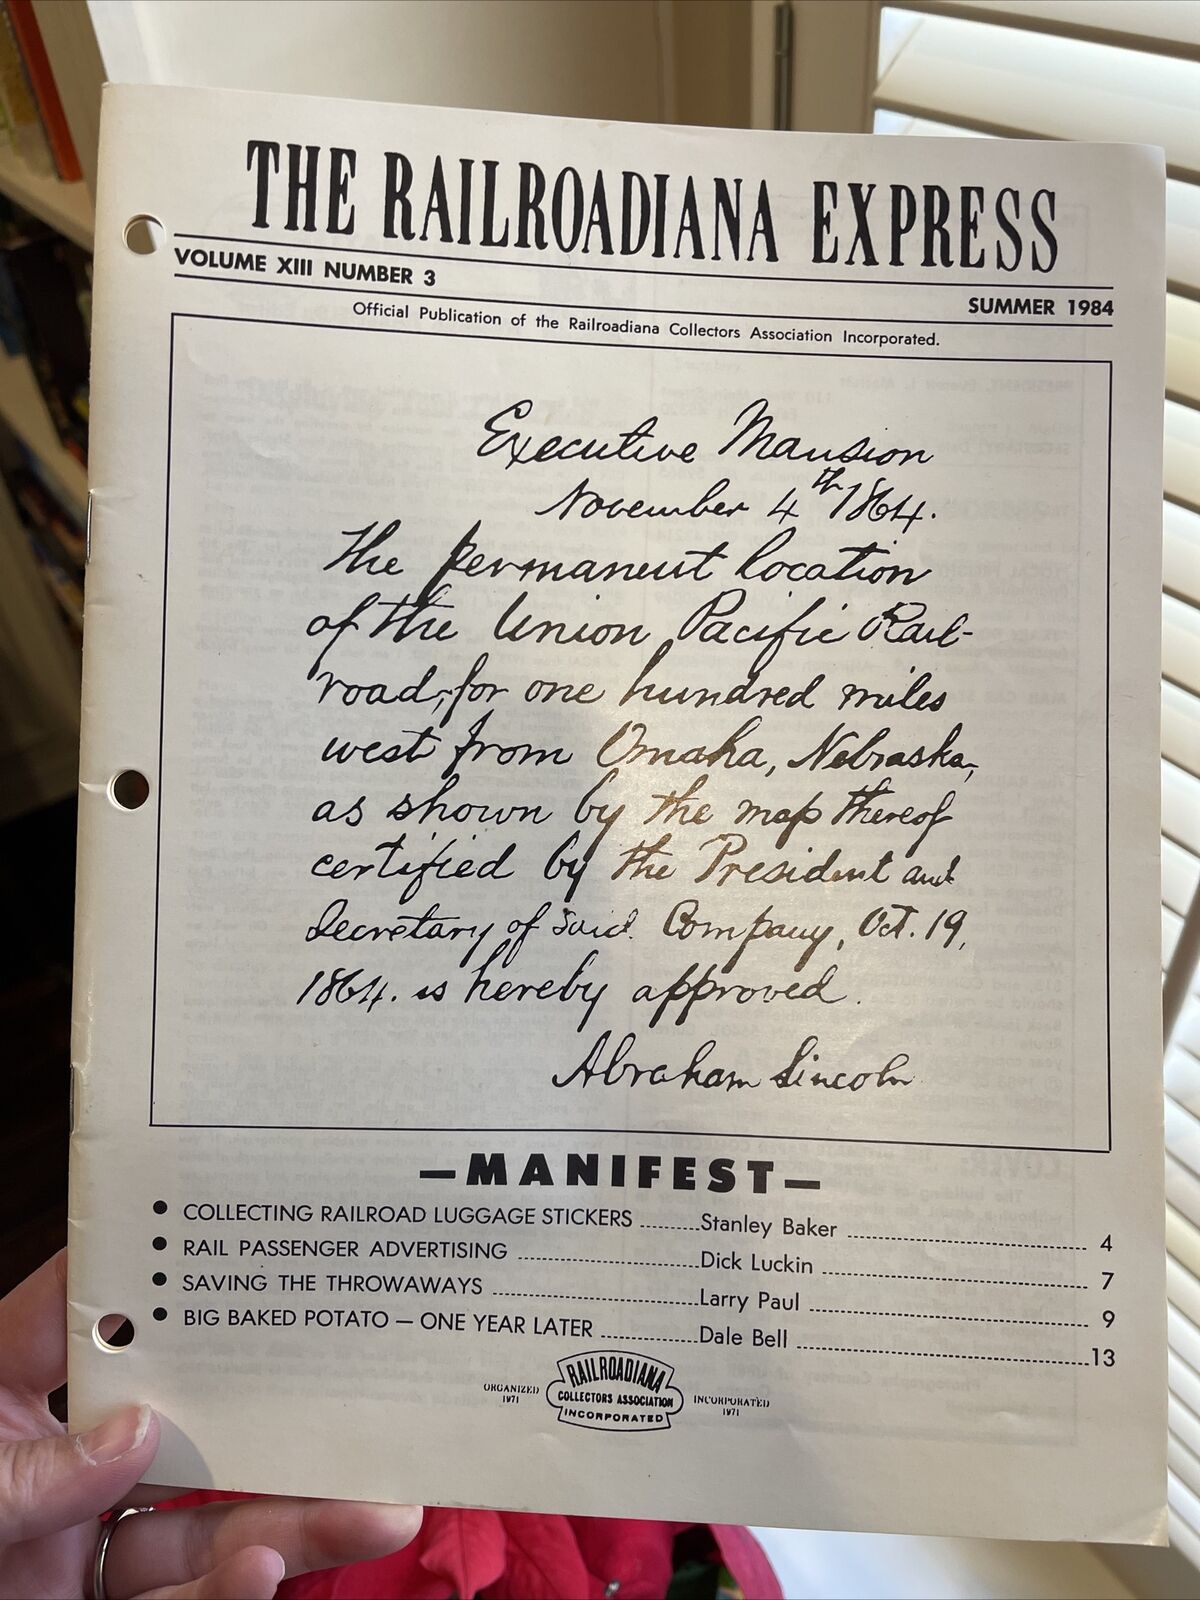 THE RAILROADIANA EXPRESS
VOLUME XIII NUMBER 3
SUMMER 1984
Official Publication of the Railroadiana Collectors Association Incorporated.
Executive Mansion
November 4th 1864.
The permanent location
of the Union Pacific Rail-
road, for one hundred miles
west from Omaha, Nebraska,
as shown by the map thereof
certified by the President and
Secretary of said Company, Oct. 19,
1864. is hereby approved.
Abraham Lincoln
—MANIFEST—
• COLLECTING RAILROAD LUGGAGE STICKERS ........Stanley Baker ........ 4
• RAIL PASSENGER ADVERTISING ........Dick Luckin ........ 7
• SAVING THE THROWAWAYS ........Larry Paul ........ 9
• BIG BAKED POTATO — ONE YEAR LATER ........Dale Bell ........13
ORGANIZED
1971
RAILROADIANA
COLLECTORS ASSOCIATION
INCORPORATED
INCORPORATED
1971